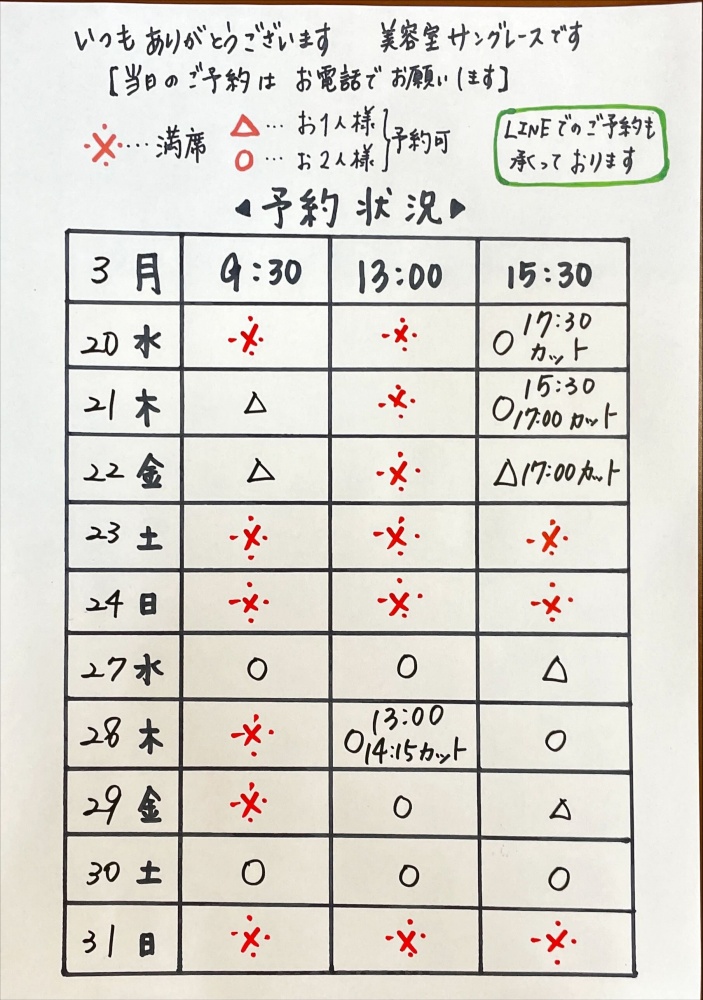 いつもありがとうございます 美容室サングレースです
[当日のご予約は お電話でお願いします]
※…満席
△…お1人様
○…お2人様
予約可
LINEでのご予約も
承っております
◀予約状況▶
3月 9:30 13:00 15:30
20 水 ※ ※ ○17:30 カット
21 木 △ ※ ○15:30 17:00 カット
22 金 △ ※ △17:00カット
23 土 ※ ※ ※
24 日 ※ ※ ※
27 水 ○ ○ △
28 木 ※ ○13:00 14:15カット ○
29 金 ※ ○ △
30 土 ○ ○ ○
31 日 ※ ※ ※